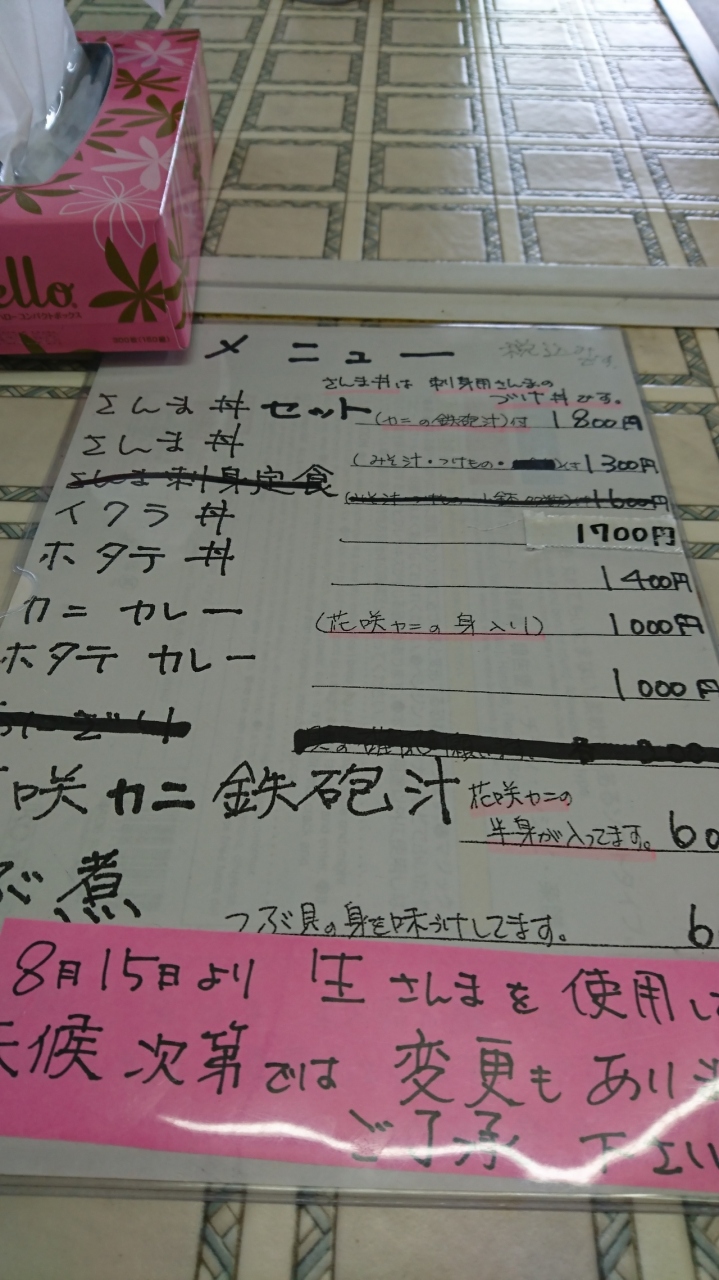 ello
ローコンパクトボックス
メニュー 税込みです。
さんま丼は 刺身用さんまの
づけ丼です。
さんま丼セット (カニの鉄砲汁)付 1800円
さんま丼 (みそ汁・つけもの・ )付 1300円
さんま刺身定食 1600円
イクラ丼 1700円
ホタテ丼 1400円
カニカレー (花咲カニの身入り) 1000円
ホタテカレー 1000円
咲カニ鉄砲汁 花咲カニの
半身が入ってます。 60
ぶ煮 つぶ貝の身を味つけしてます。 6
8月15日より 生さんまを使用し
天候次第では変更もあり
ご了承下さい